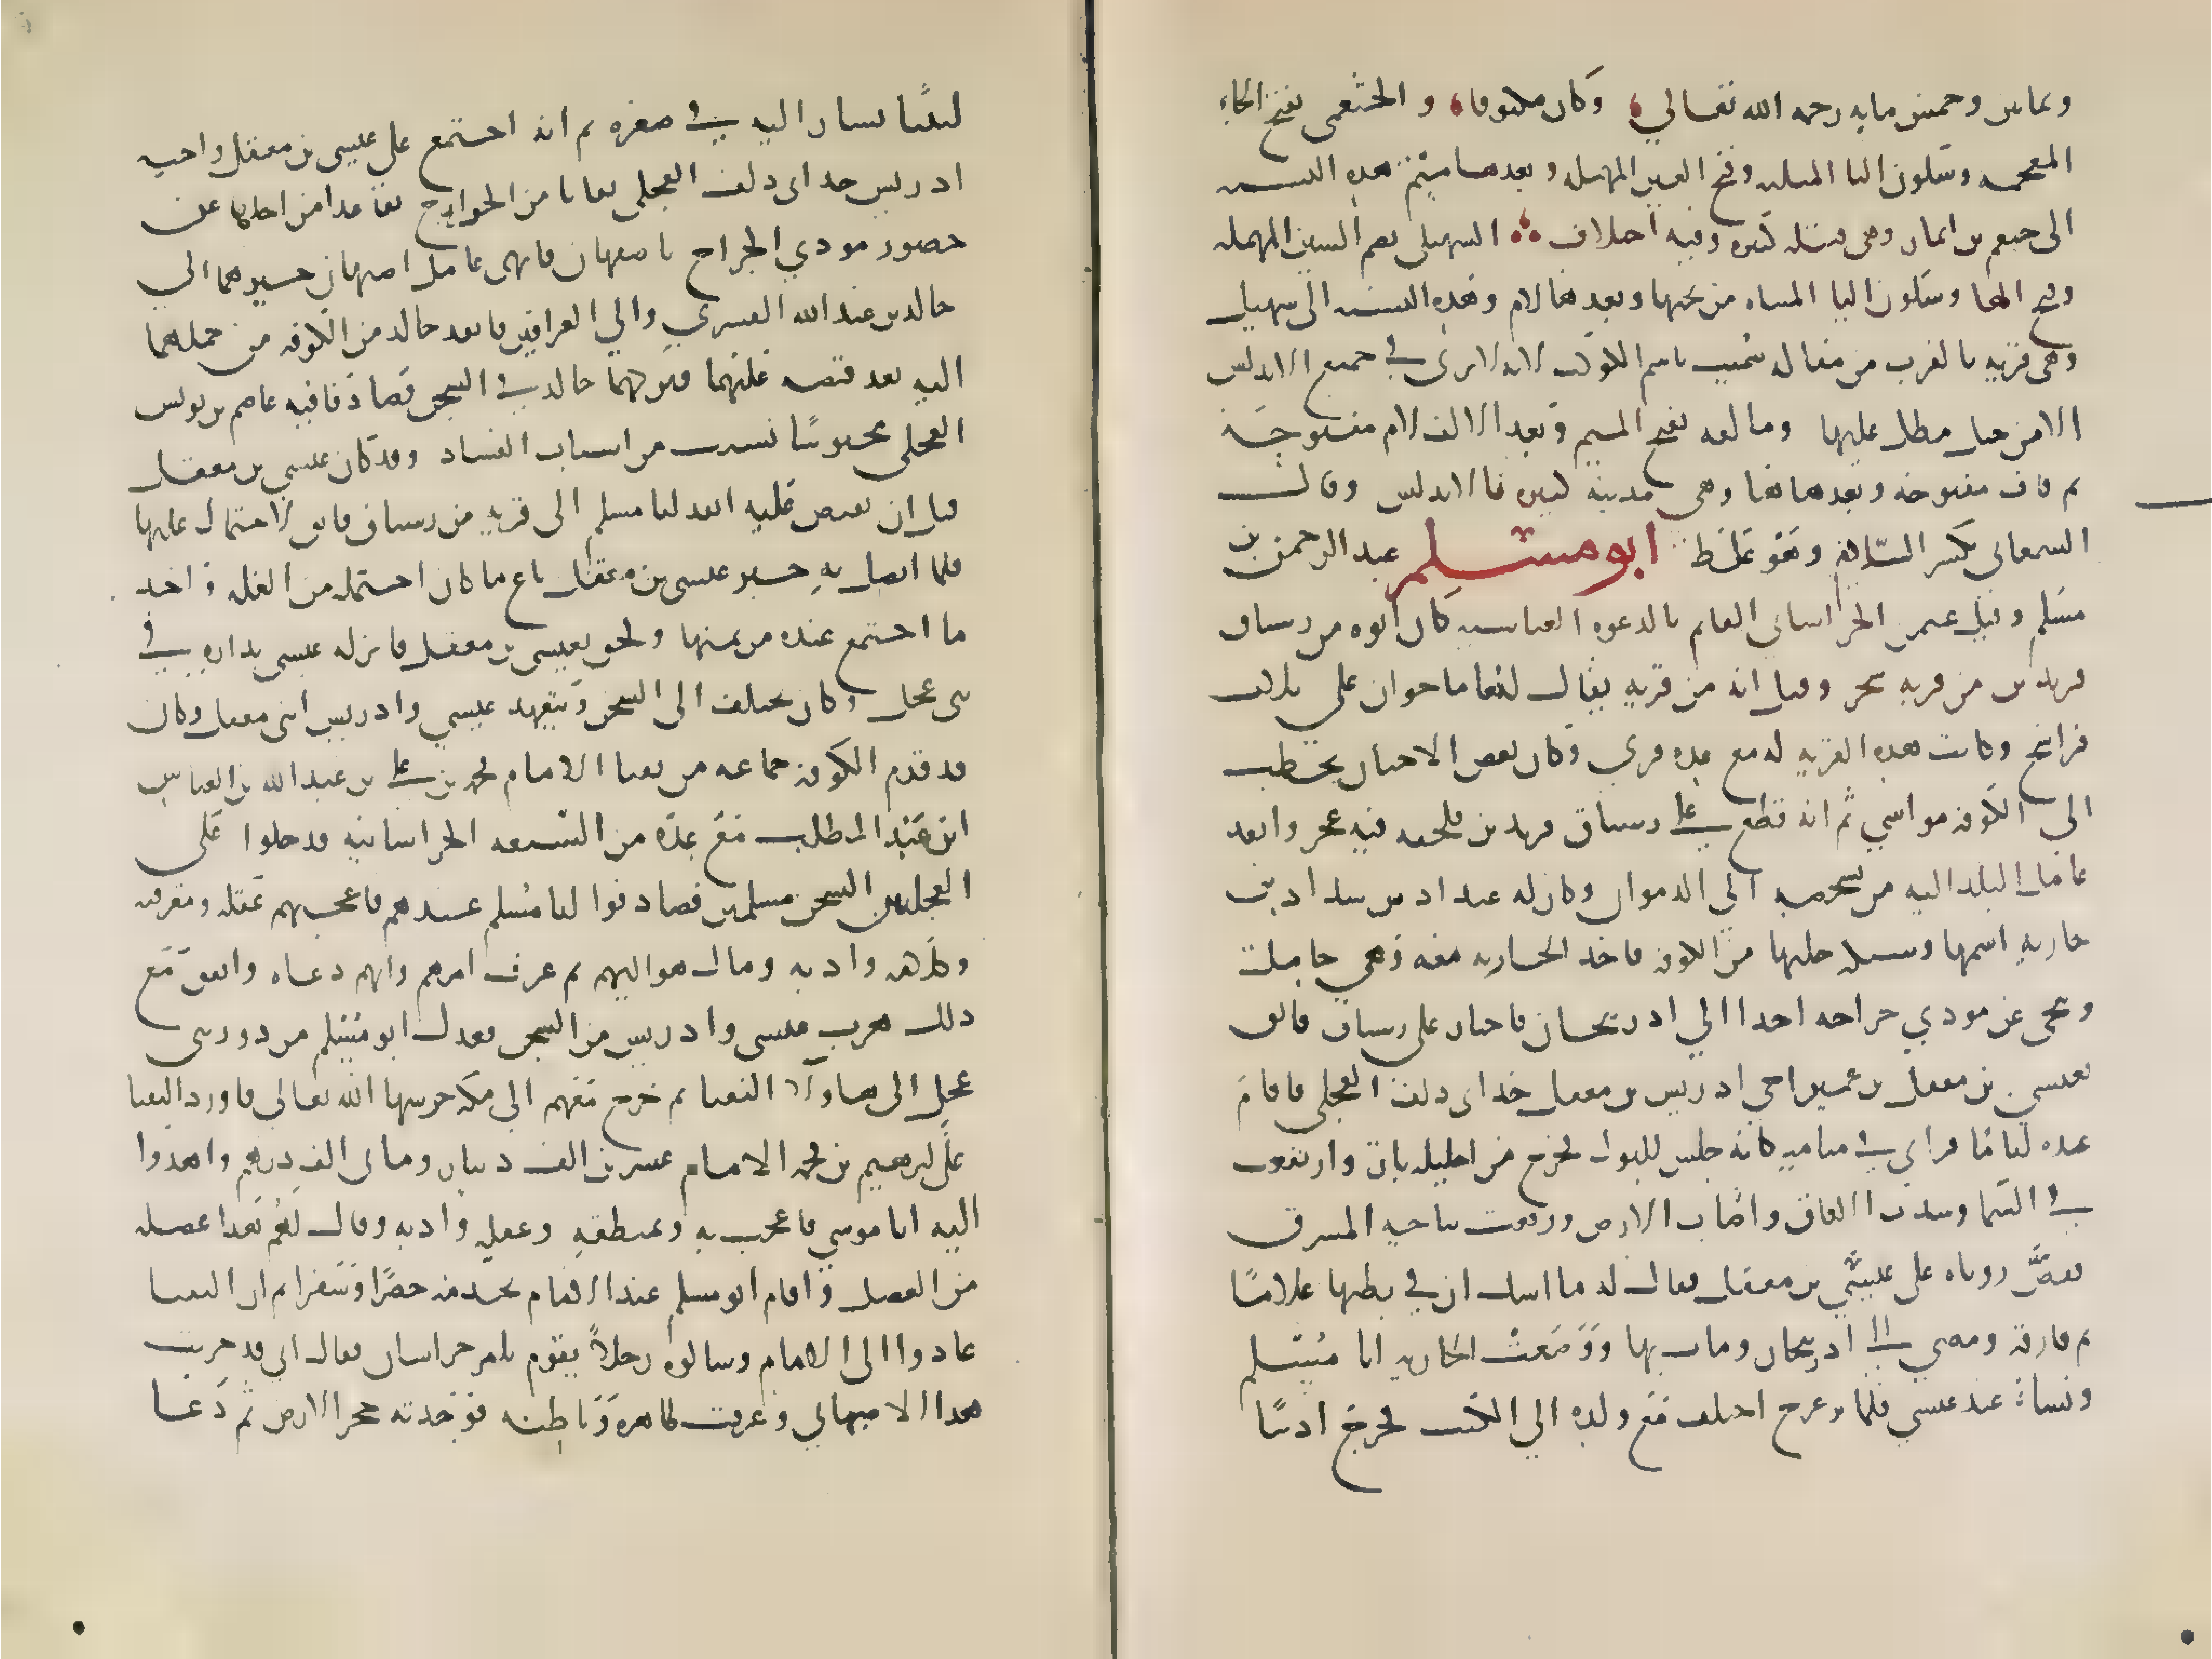 وثمانين وخمس مايه رحمه الله تعالى وكان مكفوفا والخثعمي بفتح الخاء
المعجمه وسكون الثا المثلثه وفتح العين المهمله وبعدها ميم هذه النسبه
الى خثعم بن انمار وهي قبيله كبيره وفيه اختلاف السهيلي بضم السين المهمله
وفتح الها وسكون اليا المثناه من تحتها وبعدها لام وهذه النسبه الى سهيل
وهي قريه بالقرب من مالقه سميت باسم الكوكب لانه لا يرى في جميع الاندلس
الا من جبل مطل عليها ومالقه بفتح الميم وبعد الالف لام مفتوحه
ثم قاف مفتوحه وبعدها ها وهي مدينه كبيره بالاندلس وقال
السمعاني بكسر اللام وهو غلط ابو مسلم عبد الرحمن بن
مسلم وقيل عثمن الخراساني القايم بالدعوه العباسيه كان ابوه من رستاق
فريذين من قريه سنجرد وقيل انه من قريه يقال لها ماخوان على ثلاث
فراسخ وكانت هذه القريه له مع عده قرى وكان بعض الاحيان يجلب
الى الكوفه مواشي ثم انه قاطع على رستاق فريذين فلحقه فيه عجز وانفذ
عامل البلد اليه من يشخصه الى الديوان وكان له عند اذين بنداد بن
جاريه اسمها وشيكه جلبها من الكوفه فاخذ الجاريه معه وهي حامل
وتنحى عن مودي خراجه اخذا الى اذربيجان فاجتاز على رستاق فاتق
بعيسى بن معقل بن عمير اخي ادريس بن معقل جد ابي دلف العجلي فاقام
عنده اياما فراى في منامه كانه جلس للبول فخرج من احليله نار وارتفعت
في السما وسدت الافاق واضات الارض ووقعت بناحيه المشرق
فقص روياه على عيسى بن معقل فقال له ما اشك ان في بطنها غلاما
ثم فارقه ومضى الى اذربيجان ومات بها ووضعت الجاريه ابا مسلم
ونشا عند عيسى فلما ترعرع اختلف مع ولده الى المكتب فخرج اديبا
لبيبا يشار اليه في صغره ثم انه اجتمع على عيسى بن معقل واخيه
ادريس جد ابي دلف العجلي بقايا من الخراج تقاعدا من اجلها عن
حضور مودي الخراج باصبهان فانهى عامل اصبهان خبرهما الى
خالد بن عبد الله القسري والي العراقين فانفذ خالد من الكوفه من حملهما
اليه بعد قبضه عليهما فتركهما خالد في السجن فصادفا فيه عاصم بن يونس
العجلي محبوسا بسبب من اسباب الفساد وقد كان عيسى بن معقل
قبل ان يقبض عليه انفذ ابا مسلم الى قريه من رستاق فاتق لاحتمال غلتها
فلما اتصل به خبر عيسى بن معقل باع ما كان احتمله من الغله واخذ
ما اجتمع عنده من ثمنها ولحق بعيسى بن معقل فانزله عيسى بداره في
بني عجل وكان يختلف الى السجن ويتعهد عيسى وادريس ابني معقل وكان
قد قدم الكوفه جماعه من نقبا الامام محمد بن علي بن عبد الله بن العباس
ابن عبد المطلب مع عده من الشيعه الخراسانيه فدخلوا على
العجليين السجن مسلمين فصادفوا ابا مسلم عندهم فاعجبهم عقله ومعرفته
وكلامه وادبه ومال هو اليهم ثم عرف امرهم وانهم دعاه واتفق مع
ذلك هرب عيسى وادريس من السجن فعدل ابو مسلم من دور بني
عجل الى هاولا النقبا ثم خرج معهم الى مكه حرسها الله تعالى فاورد النقبا
على ابرهيم بن محمد الامام عشرين الف دينار ومايتي الف درهم واهدوا
اليه ابا موسى فاعجب به وبمنطقه وعقله وادبه وقال لهم هذا عضله
من العضل واقام ابو مسلم عند الامام يخدمه حضرا وسفرا ثم ان النقبا
عادوا الى الامام وسالوه رجلا يقوم بامر خراسان فقال اني قد جربت
هذا الاصبهاني وعرفت ظاهره وباطنه فوجدته حجر الارض ثم دعا